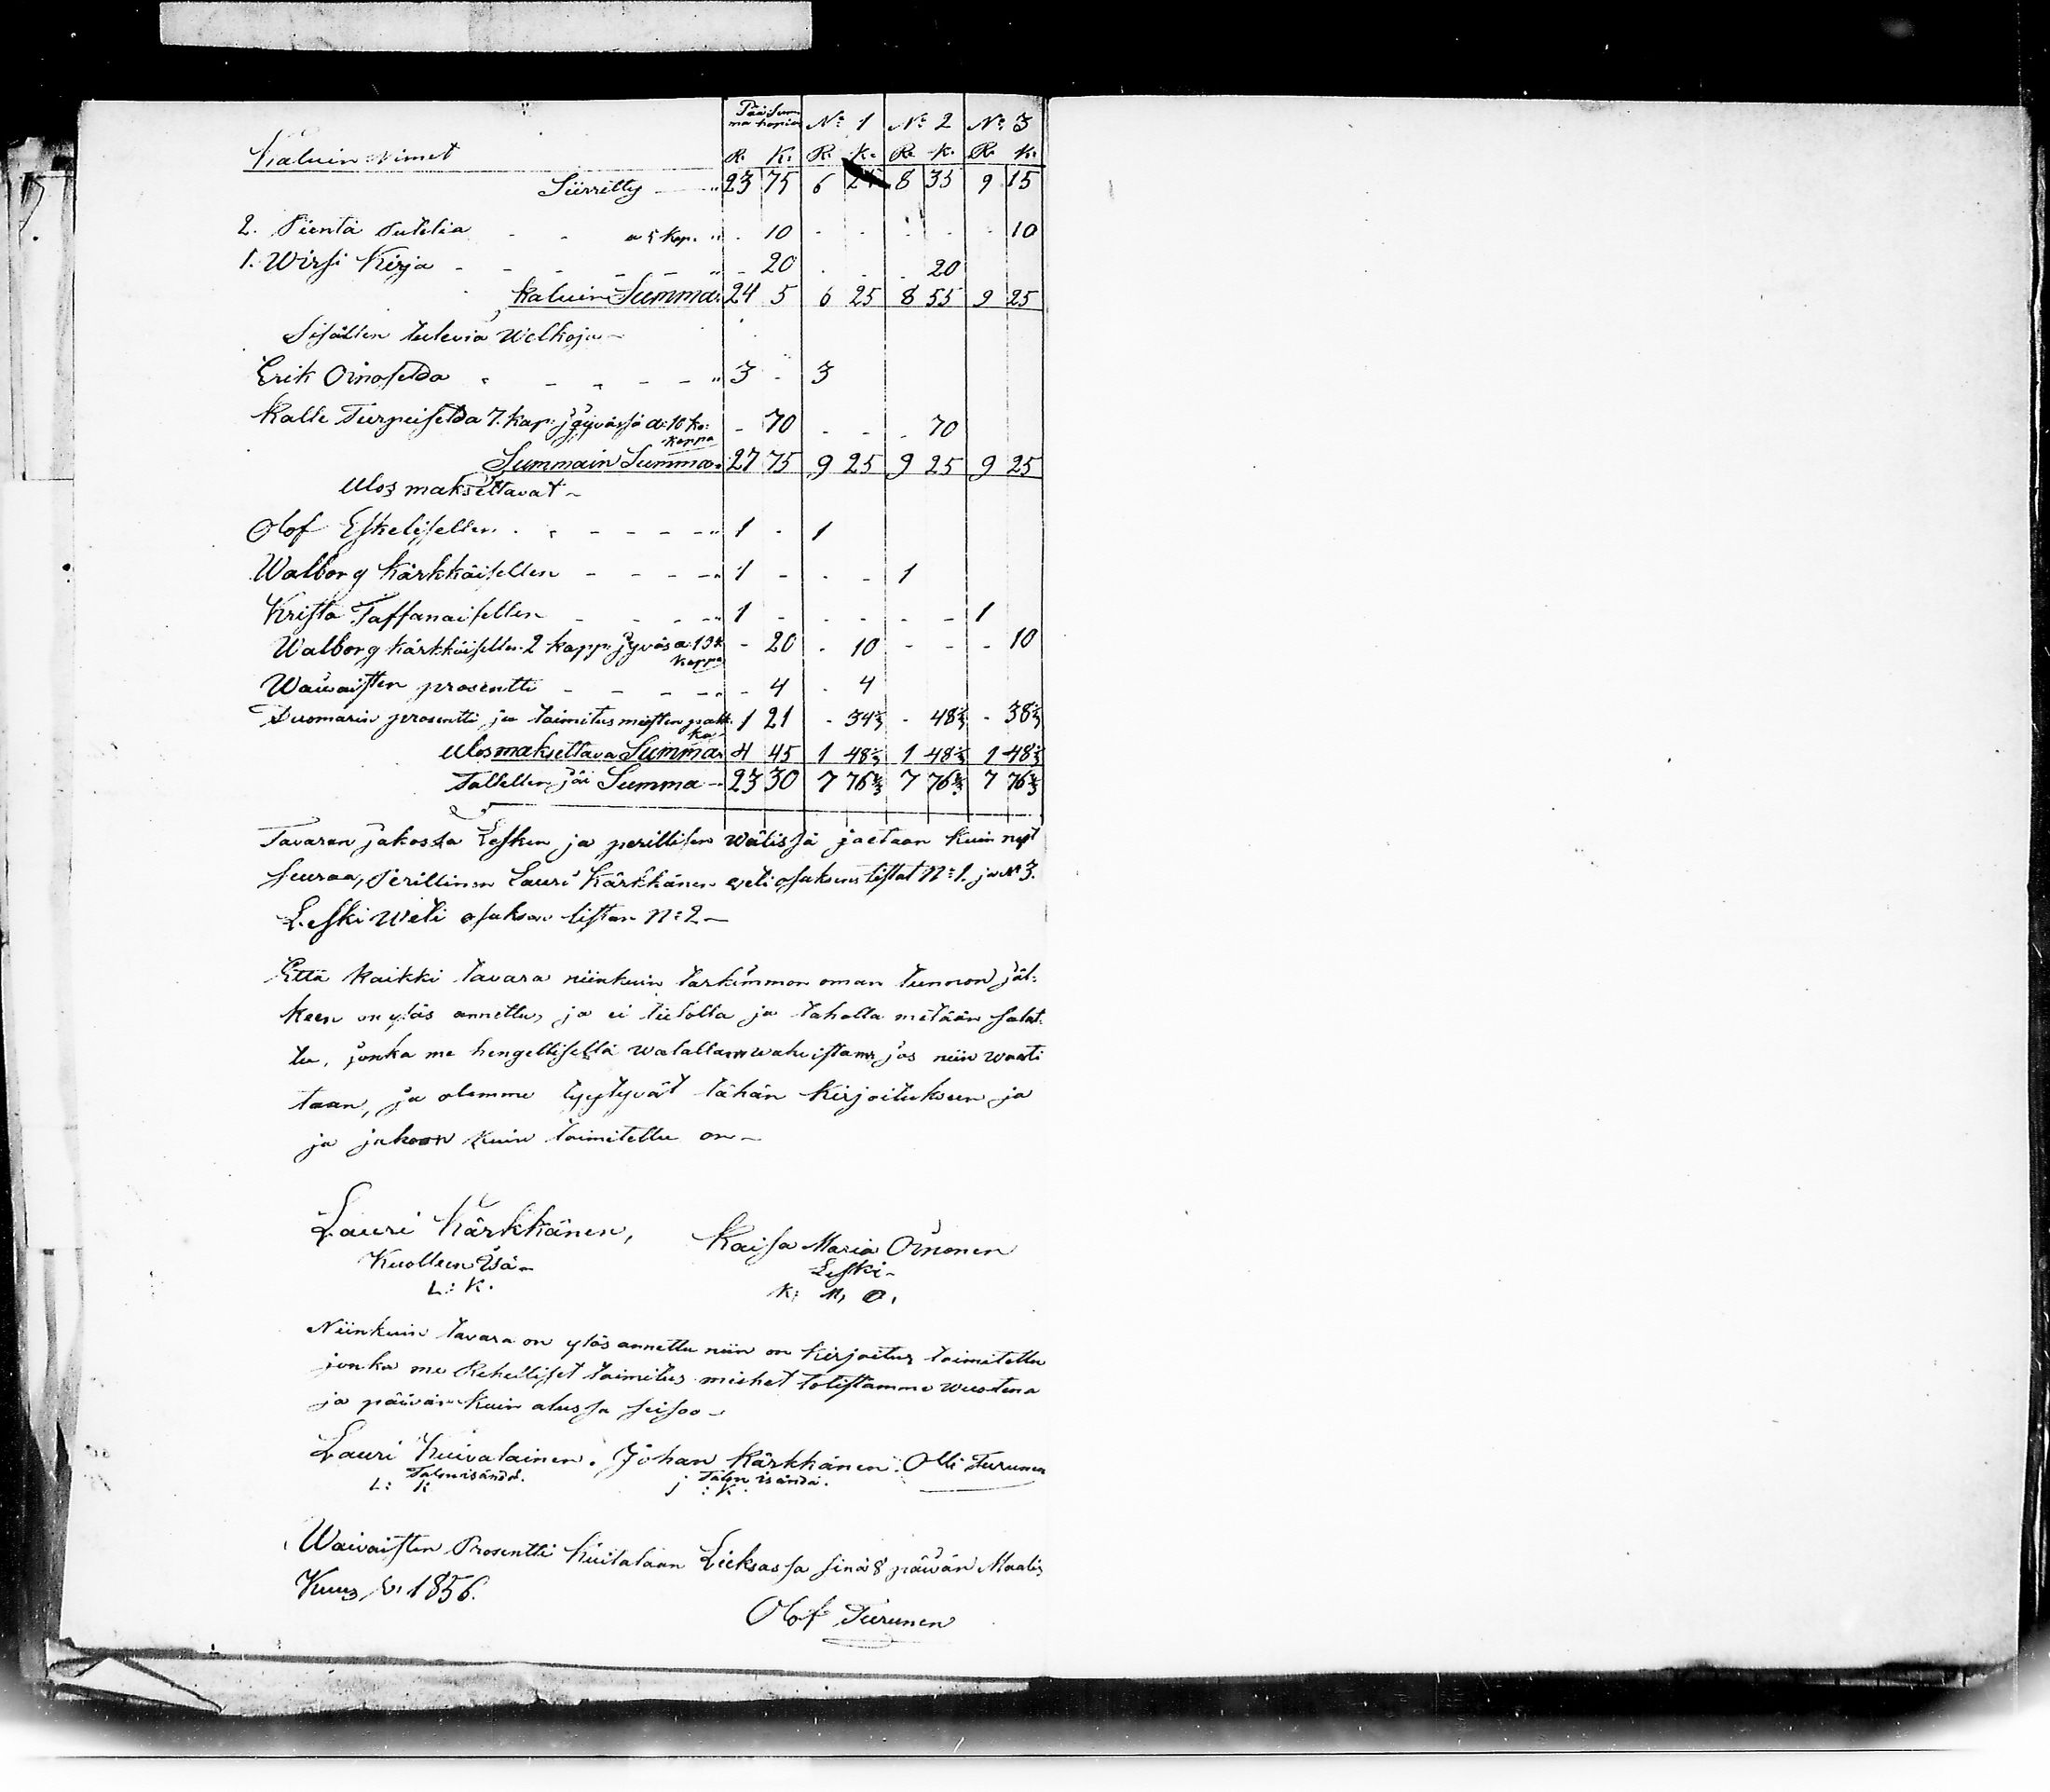 Pääsum
ma hopias N:o 1 N:o 2 N:o 3
Kaluin Nimet R. K. R. K. R. K. R. K.
Siirretty — " 23 75 6 25 8 35 9 15
2. Pientä - - a 5 Kop. " - 10 - - - - - 10
1. Wirsi Kirja - - - - - " - 20 - - - 20
Kaluin Summa " 24 5 6 25 8 55 9 25
Sisällen tulevia Welkoja —
Erik Oinoselda - - - - - " 3 - 3
Kalle Turpeiselda 7. kap: jyvässä a: 10 ko: - 70 - - - 70
kappa
Summain Summa " 27 75 9 25 9 25 9 25
Ulos maksettavat —
Olof Eskelisellen - - - - - " 1 - 1
Walborg Kärkkäisellen - - - - " 1 - - - 1
Krista Taffanaisellen - - - - " 1 - - - - - 1
Walborg Kärkkäisellen 2 kapp: jyviä a: 10 k - 20 - 10 - - - 10
kappa
Waivaisten prosentti - - - - " - 4 - 4
Duomarin prosentti ja toimitus miesten palk 1 21 - 34⅓ - 48⅓ - 38⅓
ka —
Ulosmaksettava Summa " 4 45 1 48⅓ 1 48⅓ 1 48⅓
Tallellen jäi Summa — " 23 30 7 76⅔ 7 76⅔ 7 76⅔
Tavaran jakossa Lesken ja perillisen wälissä jaetaan kuin nyt
seuraa, Perillinen Lauri Kärkkänen veti osaksens listat N:o 1. ja N:o 3.
Leski Weti osaksen listan N:o 2 —
Että kaikki tavara niinkuin tarkimmon oman tunnon jäl-
keen on ylös annettu, ja ei tiedolla ja taholla mitään salat-
tu, jonka me hengellisellä walallam wahvistam jos niin waati
taan, ja olemme tyytyvät tähän Kirjoitukseen ja
ja jakoon kuin toimitettu on —
Lauri Kärkkänen, Kaisa Maria Oinonen
Kuolleen Isä — Leski —
L: K. K: M: O.
Niinkuin tavara on ylös annettu niin on kirjoitus toimitettu
jonka me Rehelliset toimitus miehet totistamme wuotena
ja päivän kuin alussa seisoo —
Lauri Kuivalainen. Johan Kärkkänen. Olli Turunen
Talonisändä. Talon isändä.
L: K: J: K.
Waivaisten Prosentti Kuitataan Lieksassa sinä 8 päivän Maalis
Kuus v. 1856.
Olof Turunen